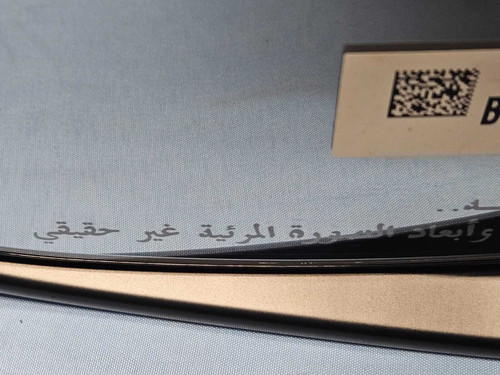 B
وأبعاد الصورة المرئية غير حقيقي